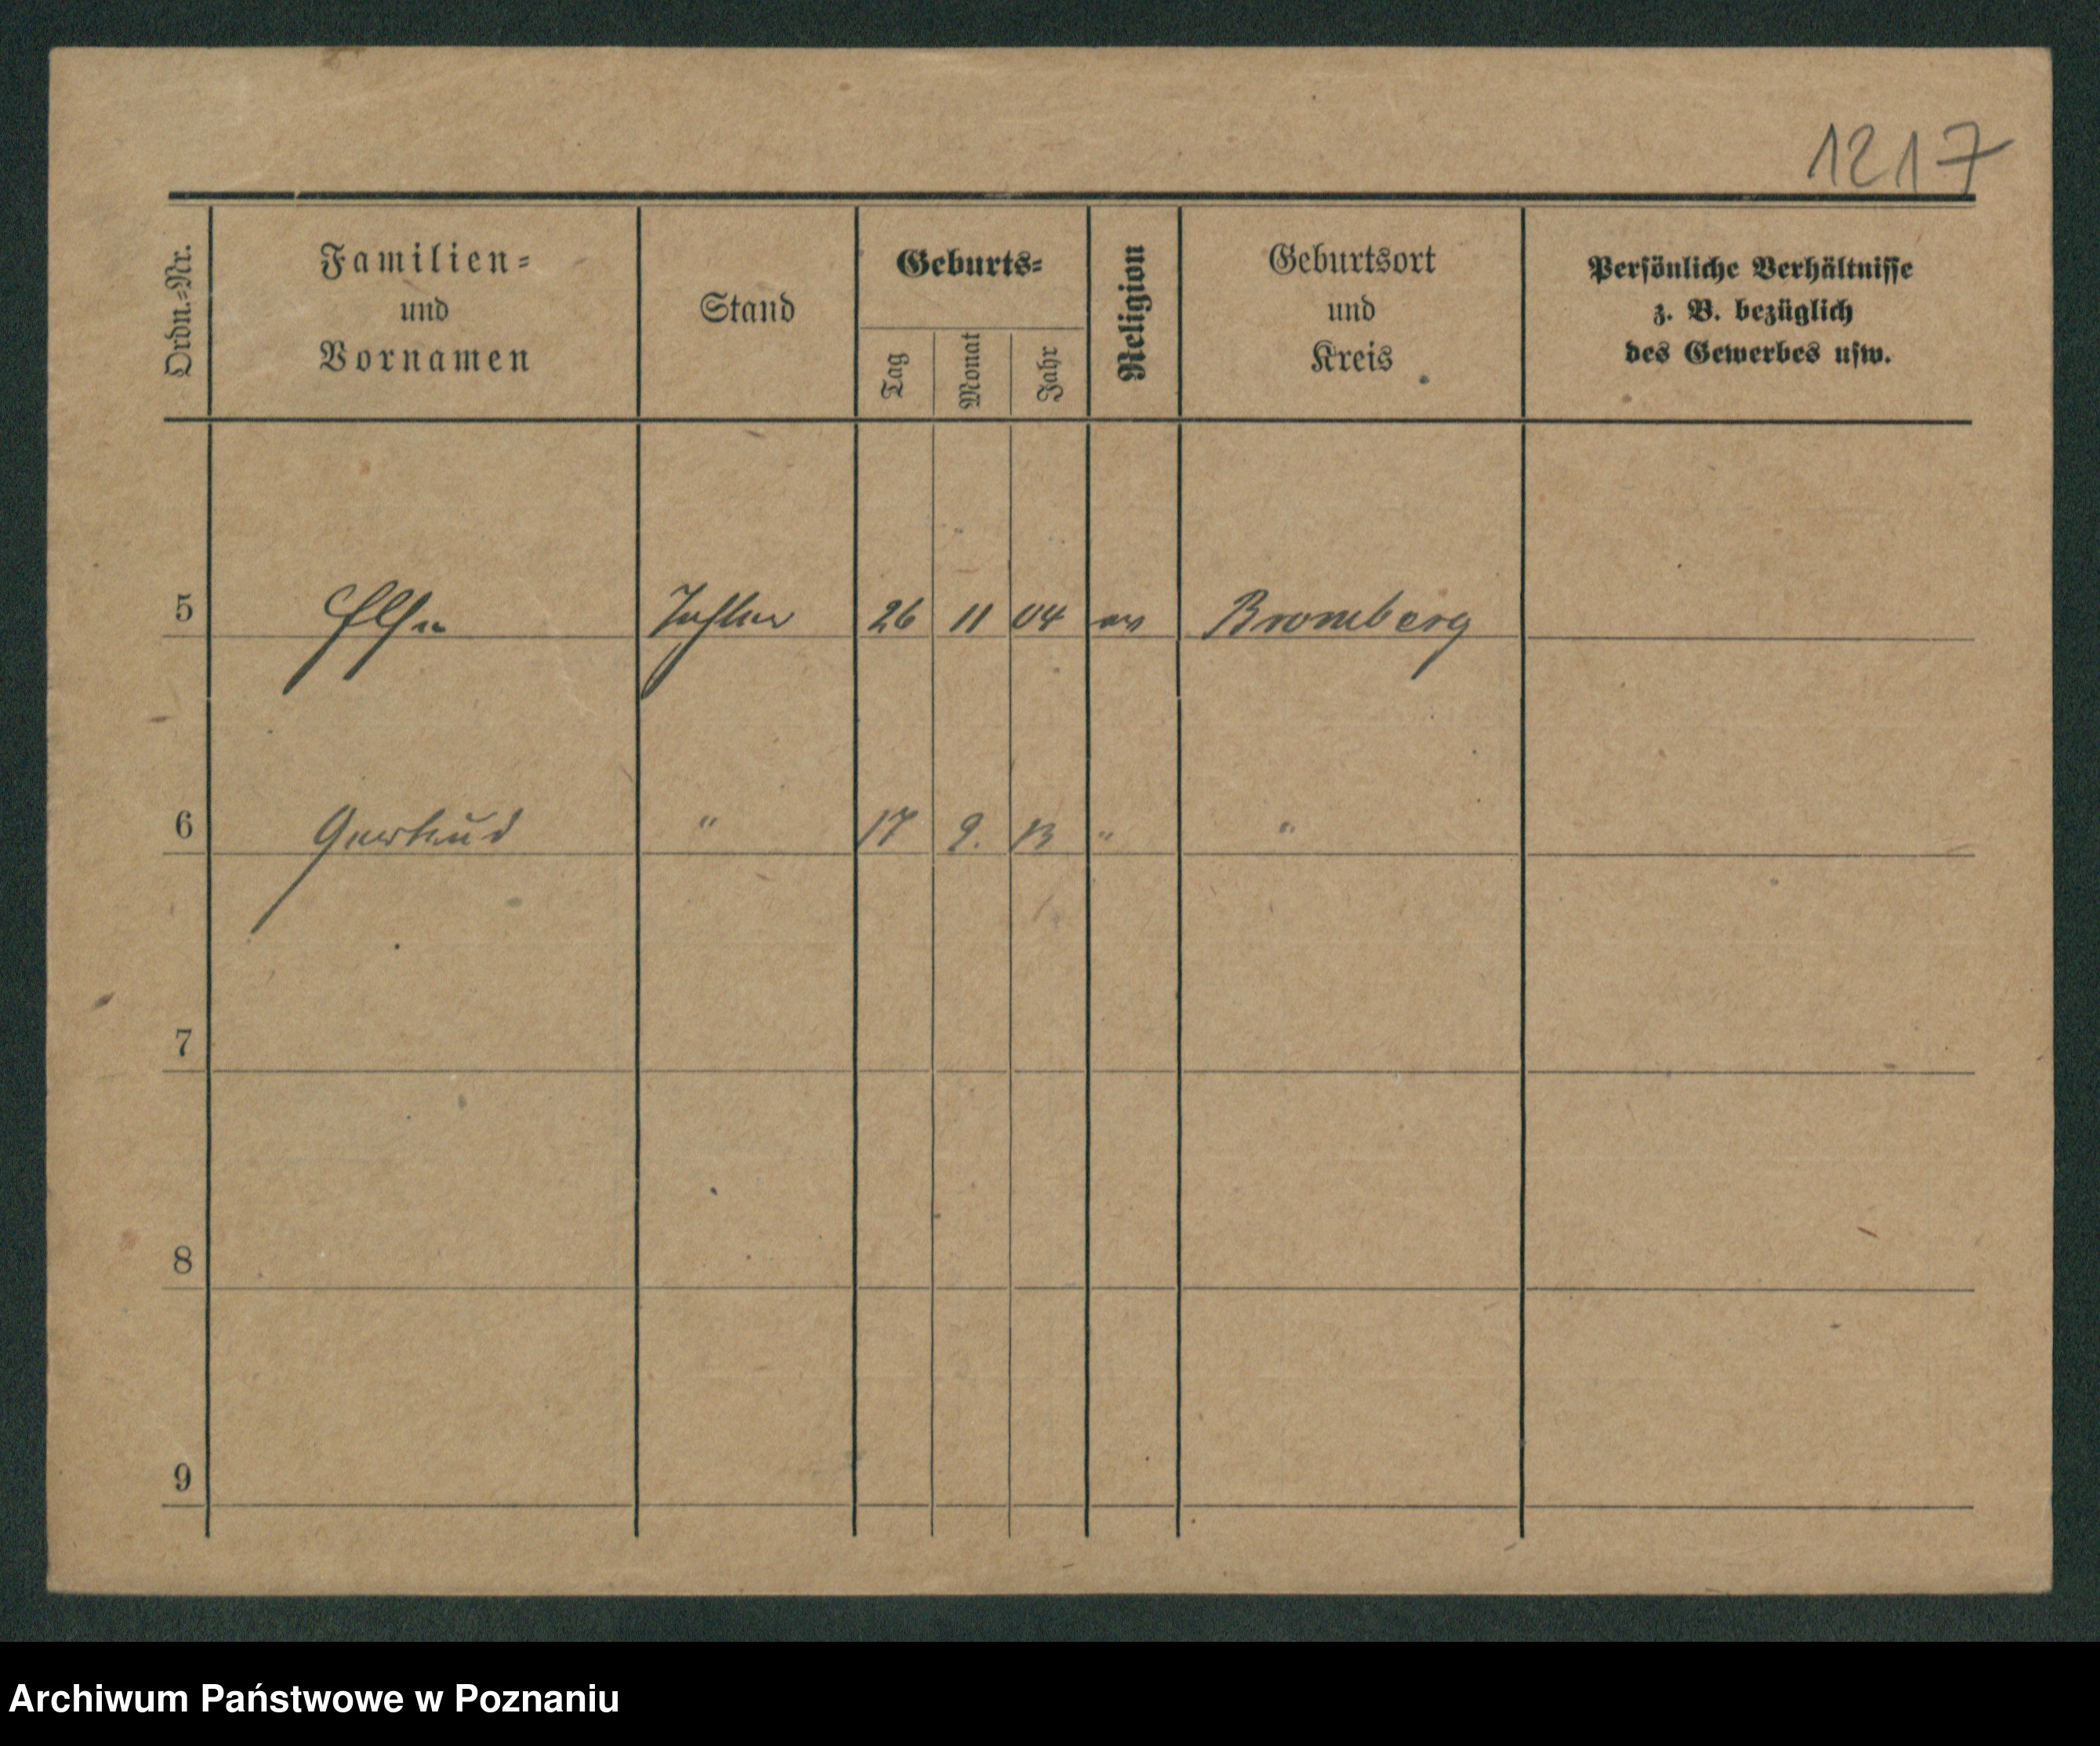 1217
Ordn.=Nr.
Familien=
und
Vornamen
Stand
Geburts=
Tag
Monat
Jahr
Religion
Geburtsort
und
Kreis
Persönliche Verhältnisse
z. B. bezüglich
des Gewerbes usw.
5 Else Tochter 26 11 04 ev Bromberg
6 Gertrud " 17 9. 13 " "
7
8
9
Archiwum Państwowe w Poznaniu